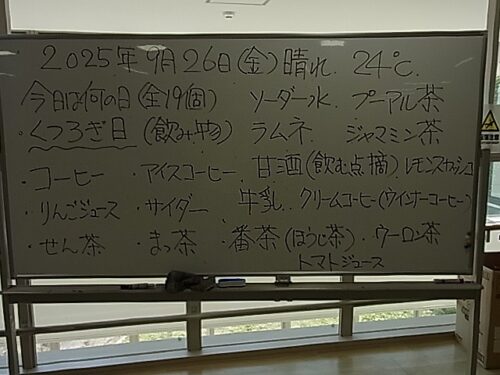 2025年9月26日(金)晴れ 24℃
今日は何の日(全19個) ソーダー水 プーアル茶
・くつろぎ日(飲み物) ラムネ ジャスミン茶
・コーヒー ・アイスコーヒー 甘酒(飲む点滴) レモンスカッシュ
・りんごジュース ・サイダー 牛乳 ・クリームコーヒー(ウインナーコーヒー)
・せん茶 ・まっ茶 ・番茶(ほうじ茶) ・ウーロン茶
トマトジュース